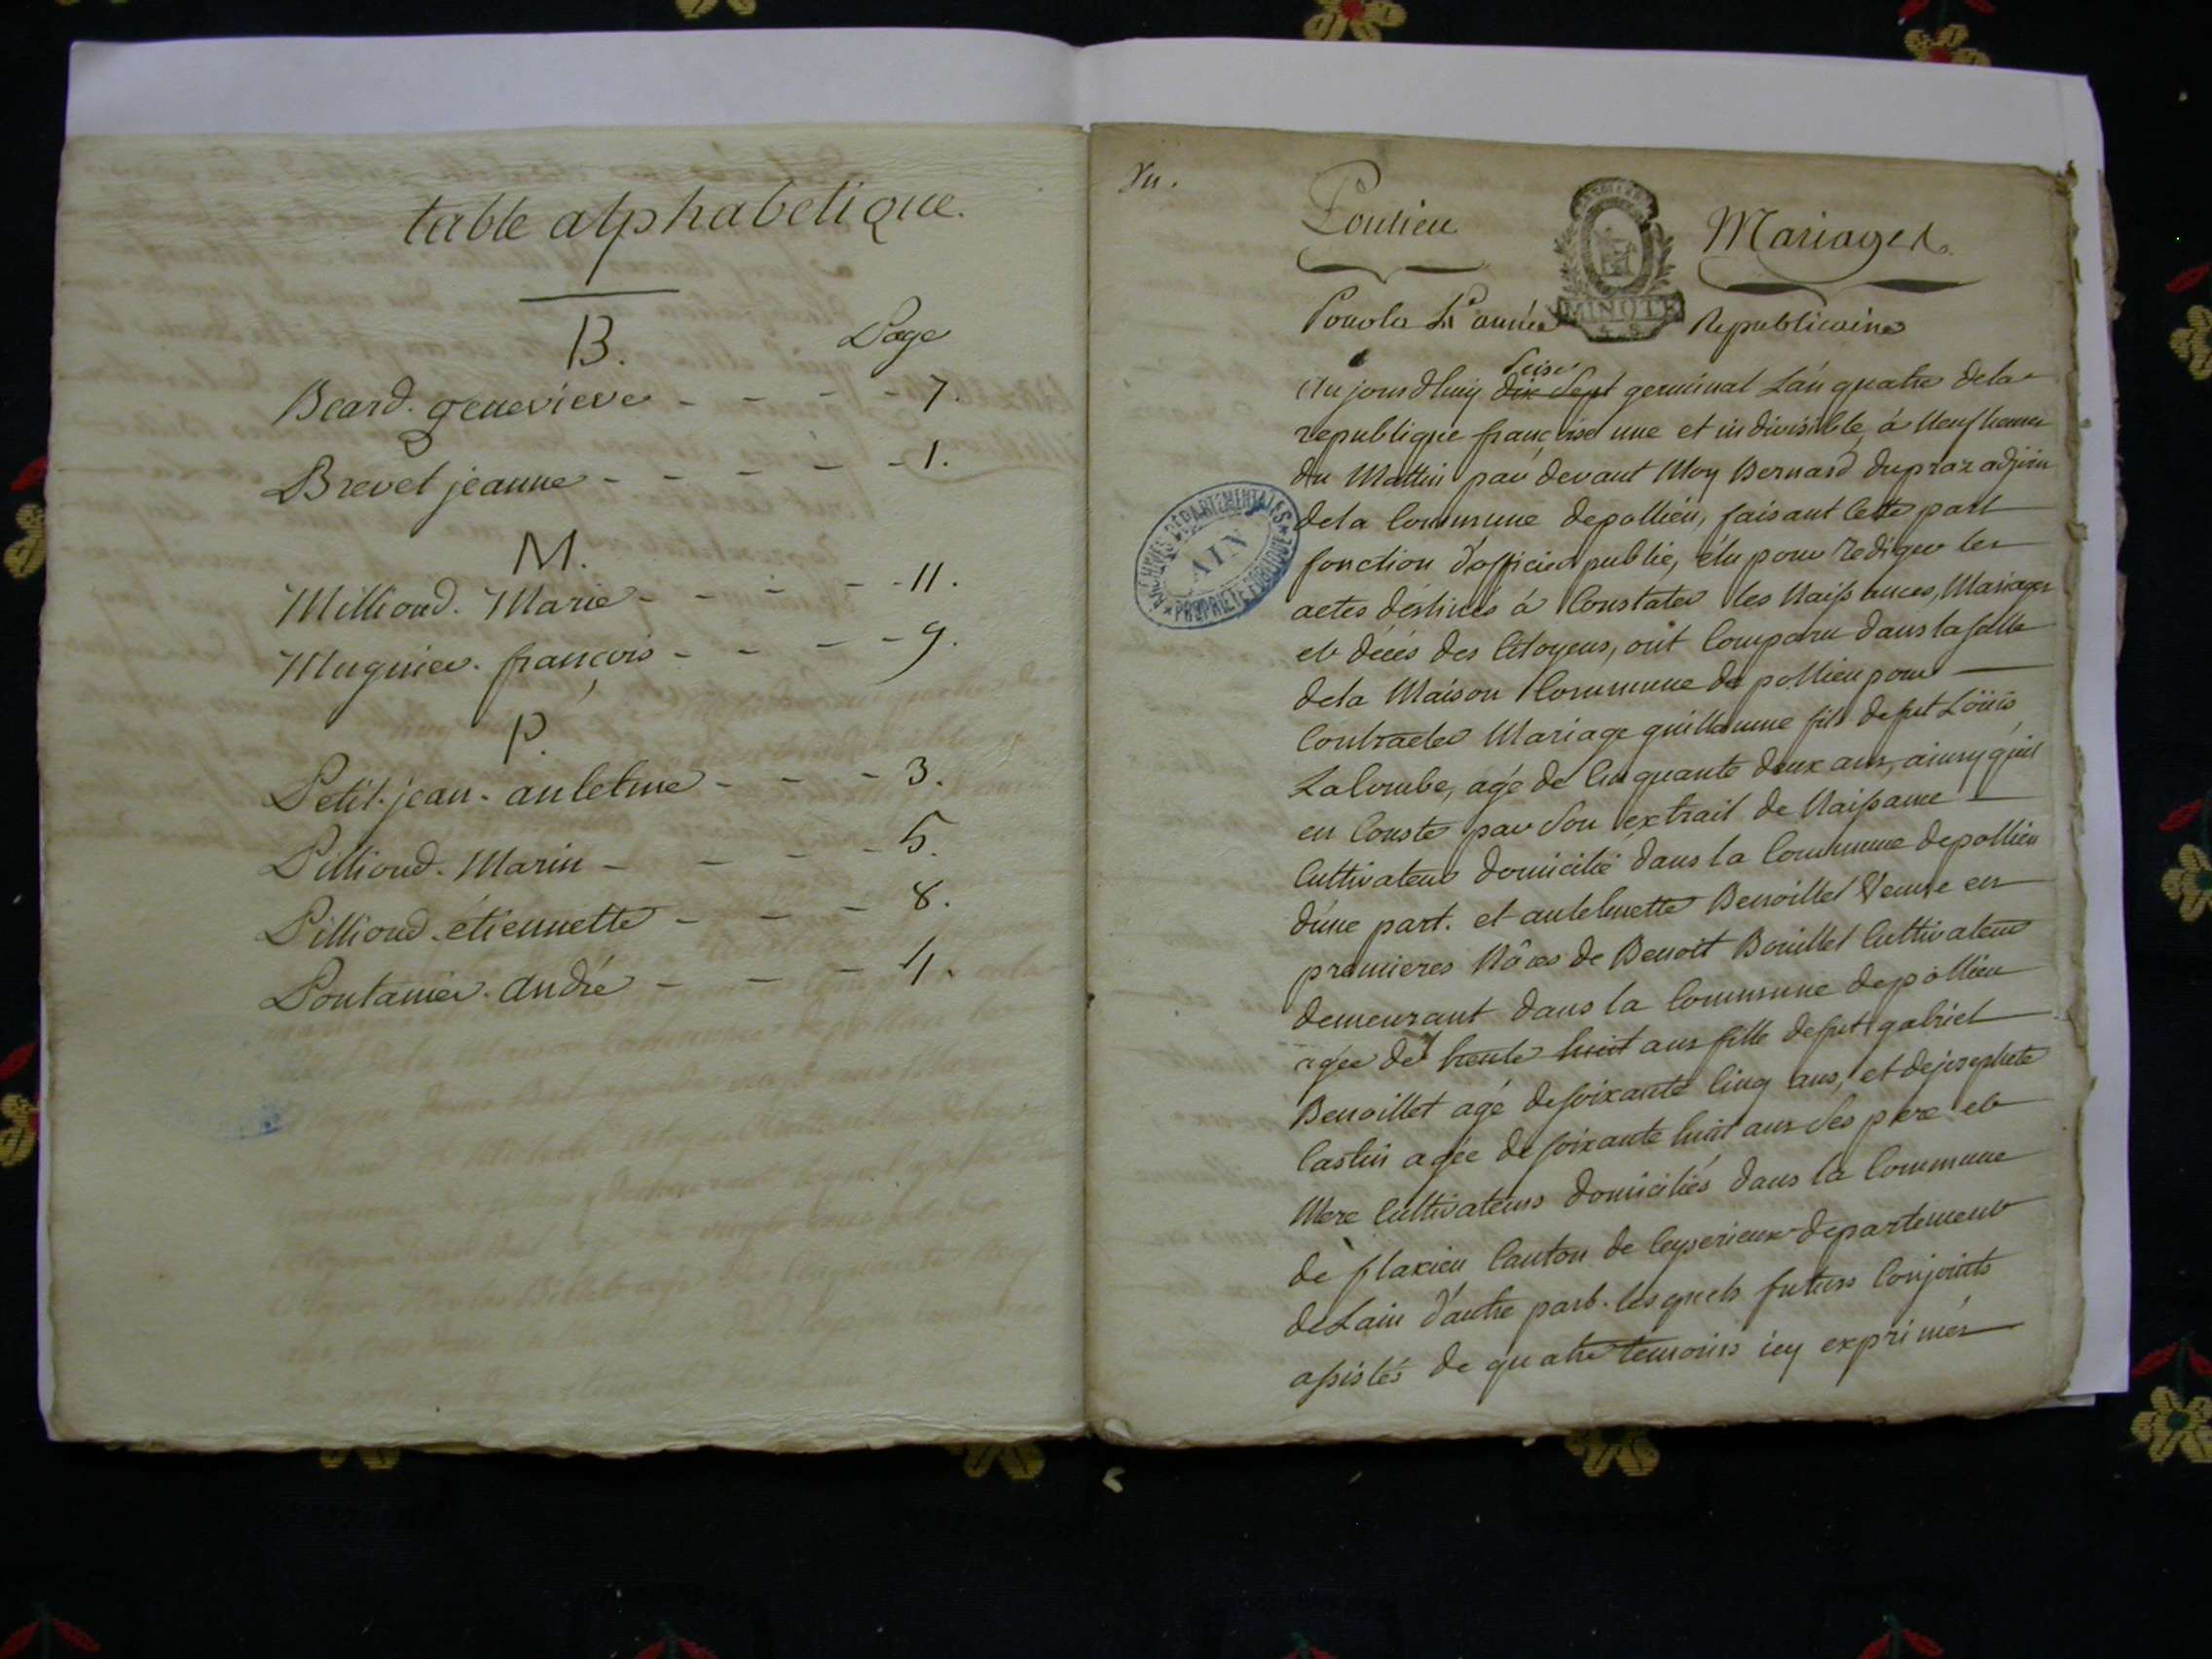 table alphabetique.
B.
Page
Beard. genevieve - - - - 7.
Brevet jeanne - - - - - 1.
M.
Milliond. Marie - - - - - 11.
Mugnier. françois - - - - 9.
P.
Petit-jean-antelme - - - 3.
Pilliond. Marin - - - - 5.
Pilliond étiennette - - - 8.
Pontanier. andré - - - 4.
Mariages
MINUTE
L'année Republicaine
Aujourdhuy dix Sept Seise germinal L'an quatre dela
republique françoise une et indivisible, à Neuf heures
du Mattin par devant Moy Bernard dupraz adjoin
dela Commune depollieu, faisant Cette part
fonction d'officier public, élu pour rediger les
actes destinés à Constater les Naissances, Mariages
et décés des Citoyens, ont Comparu dans la salle
dela Maison Commune de pollieu pour
Contracter Mariage guillaume fils defut Löuis
Lacombe, agé de Cinquante deux ans, ainsy qu'il
en Conste par Son extrait de Naissance
Cultivateur domicilié dans la Commune depollieu
d'une part. et antelmette Benoillet Veuve en
premieres Nôces de Benoit Bouillet Cultivateur
demeurant dans la Commune depollieu
agée de trente huit ans fille defut gabriel
Benoillet agé de soixante Cinq ans, et dejosephete
Castin agée de soixante huit ans Ses pere et
Mere Cultivateurs domiciliés dans la Commune
de flaxieu Canton de Ceyserieux departement
de Lain d'autre part. lesquels futurs Conjoints
assistés de quatre témoins icy exprimés
ARCHIVES DÉPARTEMENTALES
AIN
PROPRIÉTÉ PUBLIQUE